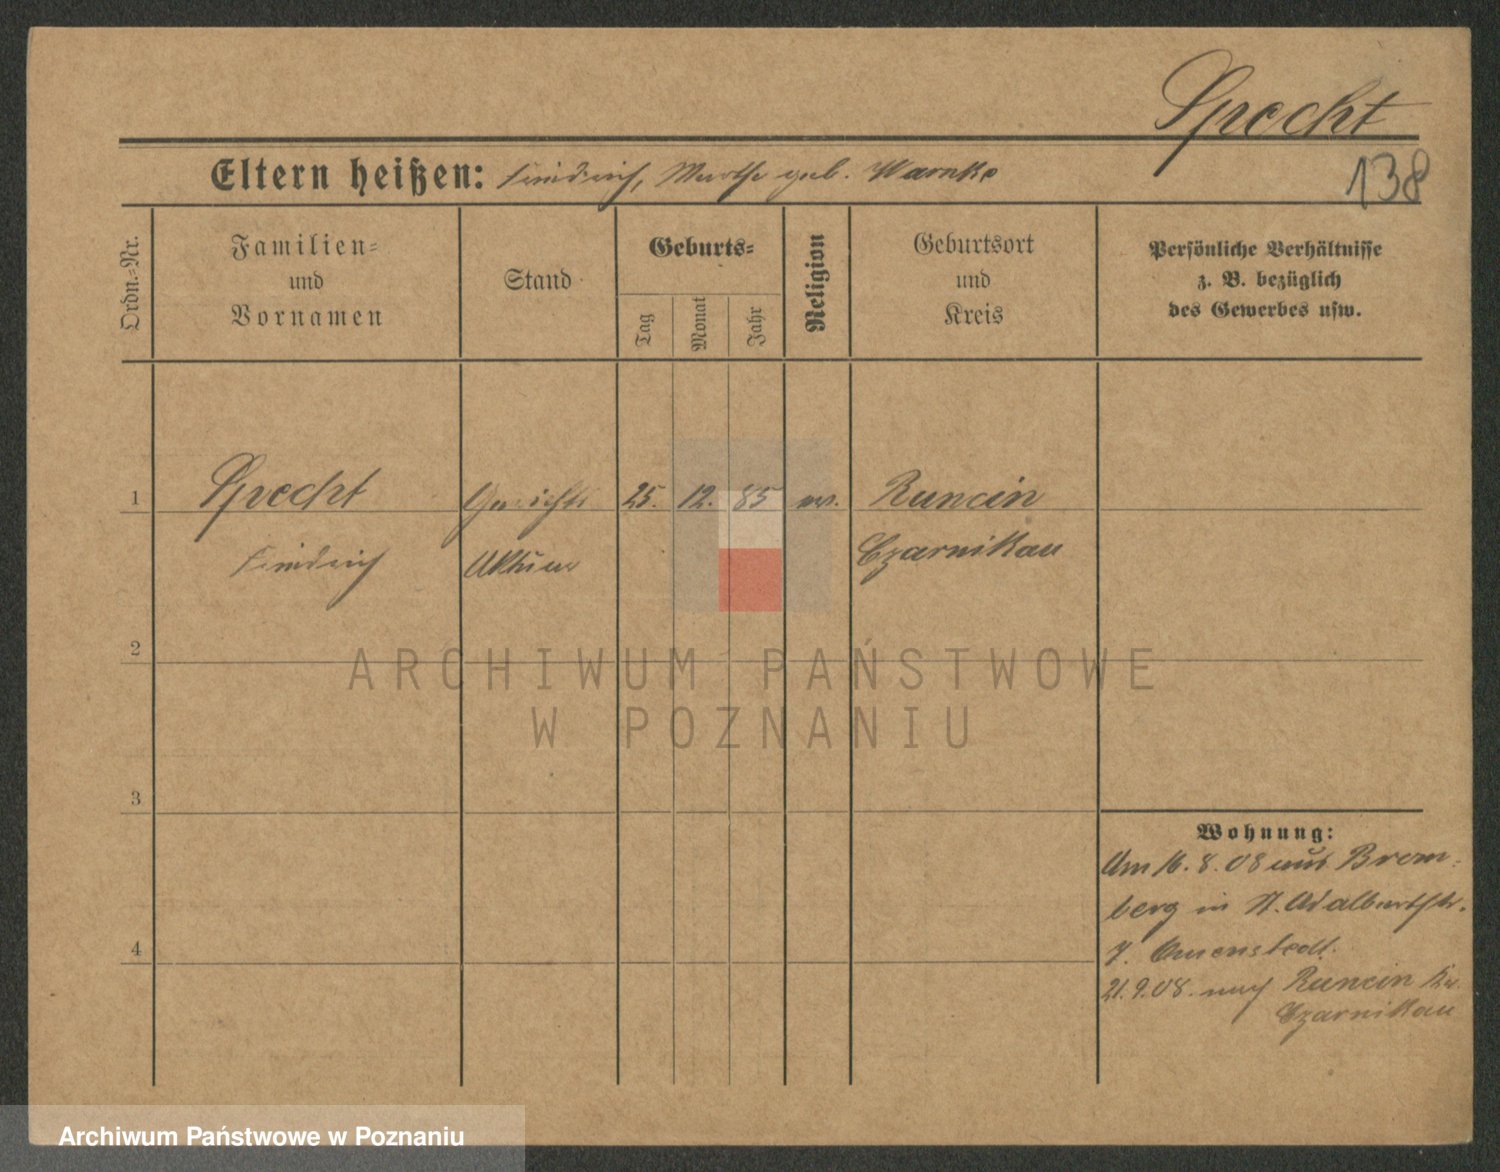 Specht
138
Eltern heißen: Friedrich, Marthe geb. Warnke
Ordn.-Nr.
Familien-
und
Vornamen
Stand
Geburts-
Tag
Monat
Jahr
Religion
Geburtsort
und
Kreis
Persönliche Verhältnisse
z. B. bezüglich
des Gewerbes usw.
1
Specht
Gerichts
25.
12.
85
ev.
Runcin
Friedrich
Aktuar
Czarnikau
2
3
4
Wohnung:
Am 16.8.08 aus Brom-
berg in St. Adalbertstr.
7.
21.9.08. nach Runcin Kr.
Czarnikau
ARCHIWUM PAŃSTWOWE
W POZNANIU
Archiwum Państwowe w Poznaniu